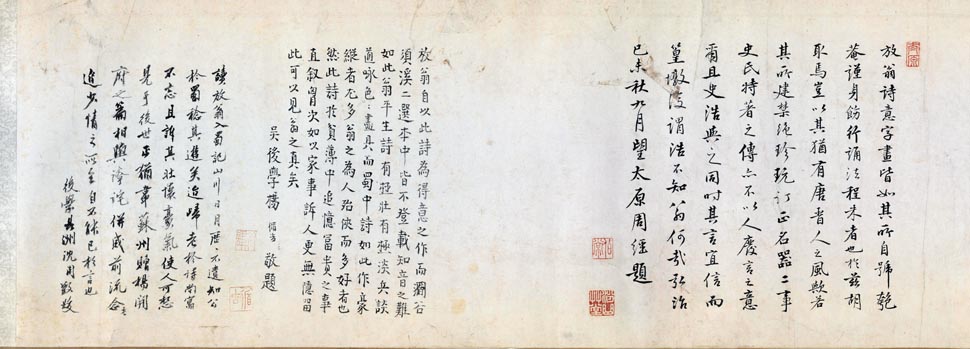 放翁詩意字畫皆如其所自號匏
菴謹身飭行誦法程朱者也於茲胡
取焉豈以其猶有唐晉人之風歟若
其所建禁絕珍玩訂正名器二事
史氏特著之傳亦不以人廢言之意
爾且史浩與之同時其言宜信而
篁墩復謂浩不知翁何哉弘治
己未秋九月望太原周經題
放翁自以此詩為得意之作而澗谷
須溪二選本中皆不登載知音之難
如此翁平生詩有壯有淡
咏色色盡具而蜀中詩如此作豪
縱者尤多翁之為人殆俠而多好者也
然此詩於貧薄中追憶富貴之事
直叙胷次如以家事訴人更無隱畱
此可以見翁之真矣
吳後學楊循吉敬題
讀放翁入蜀記山川日月歷々不遺知公
於蜀稔其遊矣迨歸老於詩尚寓
不忘且訴其壯懷豪氣使人可想
見于後世正猶韋蘇州贈楊開
府之篇相與併感前流念
追少情之所至自不能已於言也
後學長洲沈周敬跋